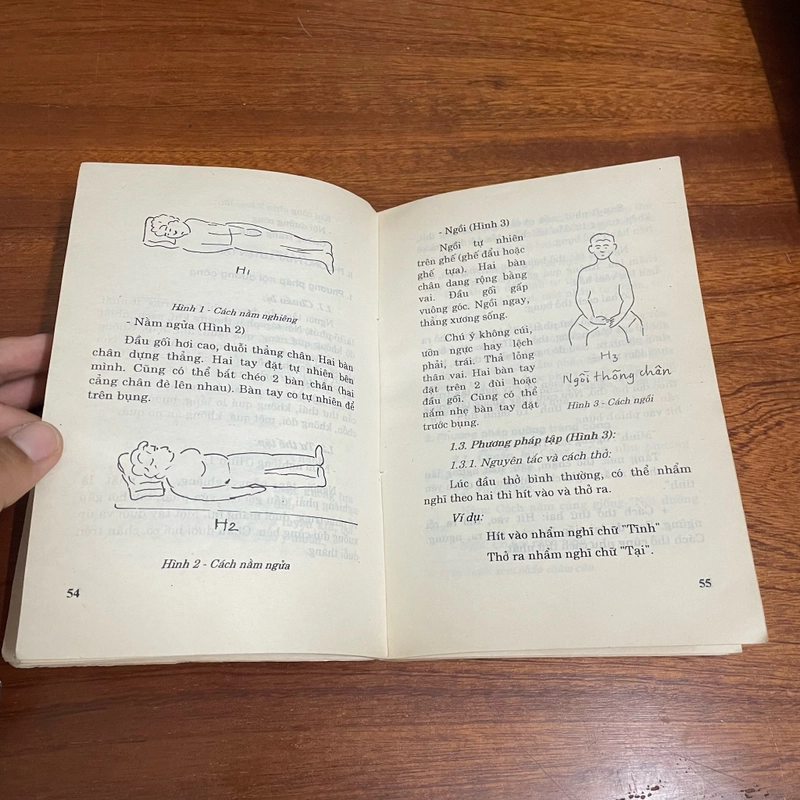 H1
Hình 1 - Cách nằm nghiêng
- Nằm ngửa (Hình 2)
Đầu gối hơi cao, duỗi thẳng chân. Hai bàn
chân dựng thẳng. Hai tay đặt tự nhiên bên
mình. Cũng có thể bắt chéo 2 bàn chân (hai
cẳng chân đè lên nhau). Bàn tay co tự nhiên để
trên bụng.
H2
Hình 2 - Cách nằm ngửa
54
- Ngồi (Hình 3)
Ngồi tự nhiên
trên ghế (ghế đẩu hoặc
ghế tựa). Hai bàn
chân dang rộng bằng
vai. Đầu gối gấp
vuông góc. Ngồi ngay,
thẳng xương sống.
Chú ý không cúi,
ưỡn ngực hay lệch
phải, trái. Thả lỏng
thân vai. Hai bàn tay
đặt trên 2 đùi hoặc
đầu gối. Cũng có thể
nắm nhẹ bàn tay đặt
trước bụng.
H3
Ngồi thõng chân
Hình 3 - Cách ngồi
1.3. Phương pháp tập (Hình 3):
1.3.1. Nguyên tắc và cách thở:
Lúc đầu thở bình thường, có thể nhẩm
nghĩ theo hai thì hít vào và thở ra.
Ví dụ:
Hít vào nhẩm nghĩ chữ "Tĩnh"
Thở ra nhẩm nghĩ chữ "Tại".
55